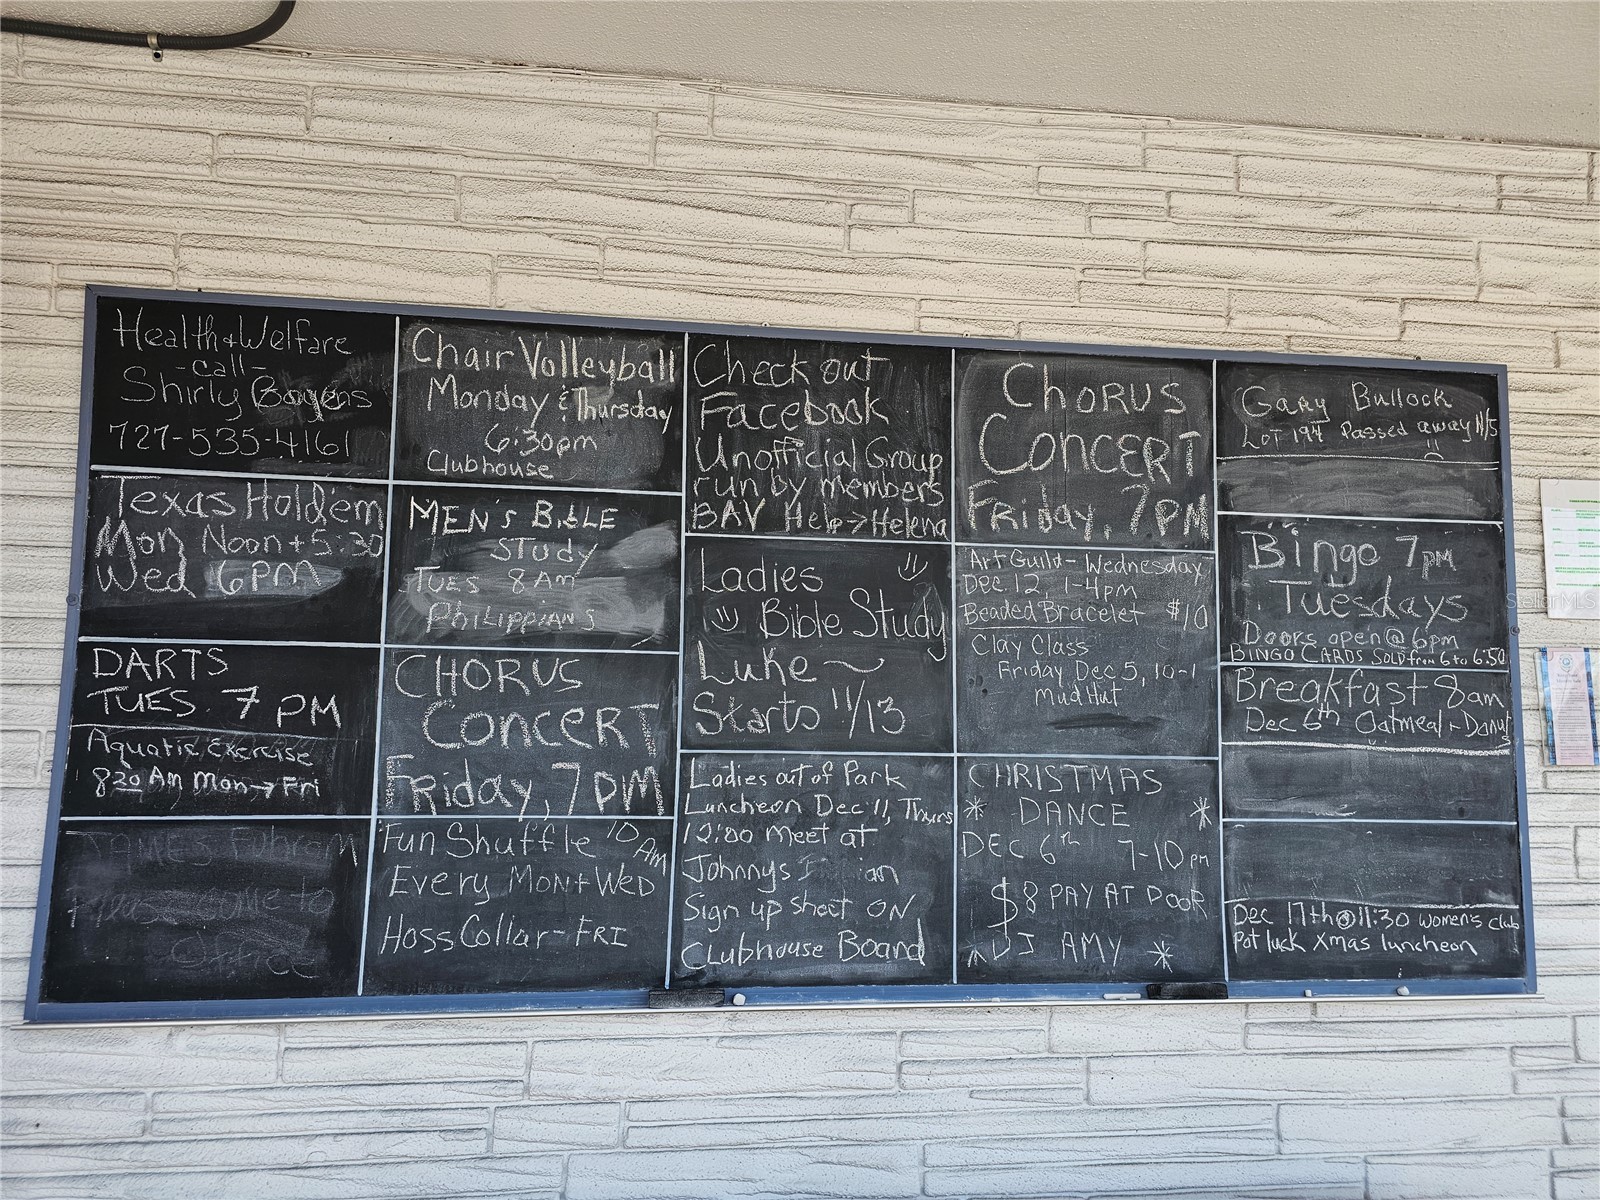 Health & Welfare
-call-
Shirly Bogens
727-535-4161
Texas Hold'em
Mon Noon + 5:30
Wed 6PM
DARTS
TUES. 7 PM
Aquatic Exercise
8 30 AM Mon → Fri
JAMES
come to
Office
Chair Volleyball
Monday & Thursday
6:30pm
Clubhouse
MEN'S BIBLE
STUDY
TUES 8 AM
PHILIPPIANS
CHORUS
CONCERT
FRiday, 7 PM
Fun Shuffle 10 AM
Every MON + WED
Hoss Collar - FRI
Check out
Facebook
Unofficial Group
run by members
BAV Help → Helena
Ladies
Bible Study
Luke ~
Starts 11/13
Ladies out of Park
Luncheon Dec 11, Thurs
12:00 meet at
Johnnys
Sign up sheet ON
Clubhouse Board
CHORUS
CONCERT
FRiday, 7 PM
Art Guild - Wednesday
Dec. 12, 1-4pm
Beaded Bracelet $10
Clay Class
Friday Dec 5, 10-1
Mud Hut
CHRISTMAS
* DANCE *
DEC 6th 7-10 pm
$8 PAY AT DOOR
DJ AMY *
Gary Bullock
LOT 194 Passed away 11/5
Bingo 7pm
Tuesdays
Doors open @ 6pm
BINGO CARDS SOLD from 6 to 6:50
Breakfast 8am
Dec 6th Oatmeal + Donuts
Dec 17th @ 11:30 women's club
Pot luck Xmas luncheon
StellarMLS